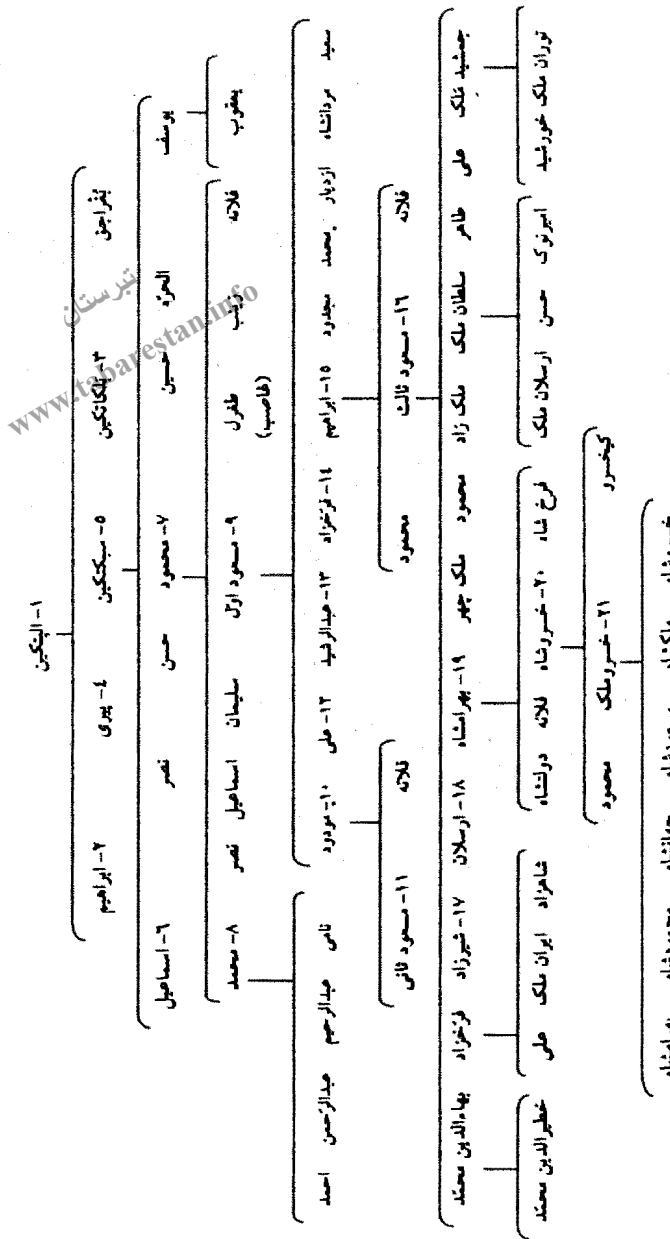 ۱- الپتکین
۲- ابراهیم ۴- پیری ۵- سبکتکین ۳- بلکاتکین بغراجق
۶- اسماعیل نصر حسن ۷- محمود حسین الحرّه یوسف
۸- محمد نصر اسماعیل سلیمان ۹- مسعود اوّل طغرل زینب فلانه یعقوب
(غاصب)
احمد عبدالرّحمن عبدالرحیم نامی ۱۰- مودود ۱۲- علی ۱۳- عبدالرشید ۱۴- فرّخزاد ۱۵- ابراهیم مجدود محمد ازدیار مردانشاه سعید
۱۱- مسعود ثانی فلانه محمود ۱۶- مسعود ثالث فلانه
بهاءالدین محمّد فرّخزاد ۱۷- شیرزاد ۱۸- ارسلان ۱۹- بهرامشاه ملک چهر محمود ملک زاد سلطان ملک طاهر علی جمشید ملک
خطیرالدین محمّد علی ایران ملک شاهزاد دولتشاه فلانه ۲۰- خسروشاه فرخ شاه ارسلان ملک حسن امیرنوک توران ملک خورشید
محمود ۲۱- خسروملک کیخسرو
تبرستان
www.tabarestan.info